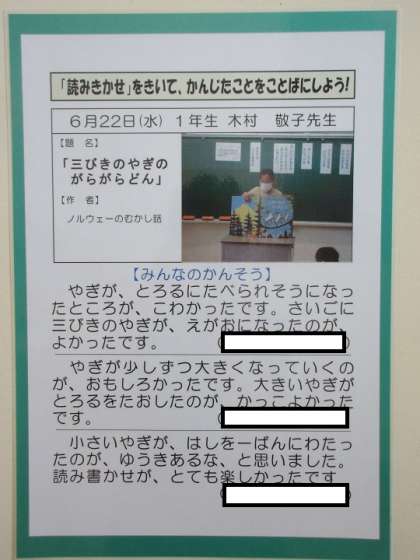 「読みきかせ」をきいて、かんじたことをことばにしよう！
６月２２日（水） １年生 木村 敬子先生
【題 名】
「三びきのやぎの
がらがらどん」
【作 者】
ノルウェーのむかし話
【みんなのかんそう】
やぎが、とろるにたべられそうになっ
たところが、こわかったです。さいごに
三びきのやぎが、えがおになったのが、
よかったです。
やぎが少しずつ大きくなっていくの
が、おもしろかったです。大きいやぎが
とろるをたおしたのが、かっこよかった
です。
小さいやぎが、はしを一ばんにわたっ
たのが、ゆうきあるな、と思いました。
読み書かせが、とても楽しかったです